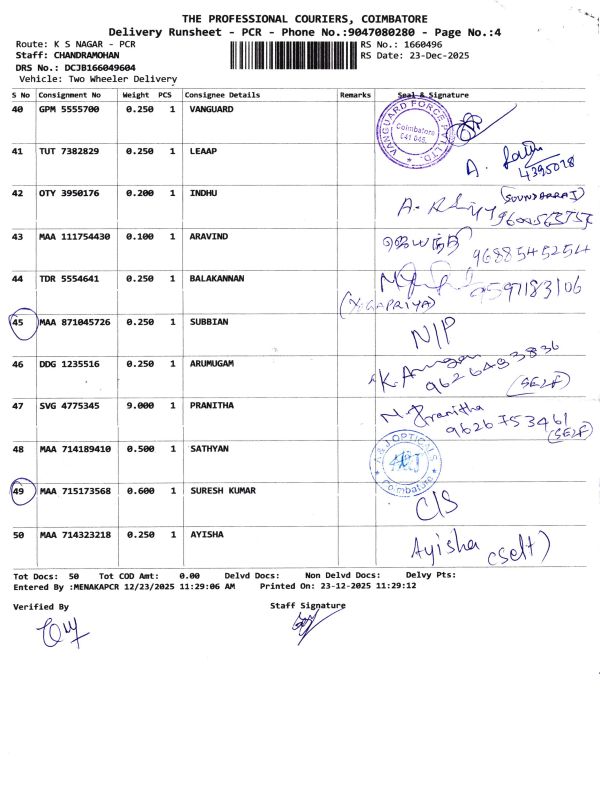 THE PROFESSIONAL COURIERS, COIMBATORE
Delivery Runsheet - PCR - Phone No.:9047080280 - Page No.:4
Route: K S NAGAR - PCR
RS No.: 1660496
Staff: CHANDRAMOHAN
RS Date: 23-Dec-2025
DRS No.: DCJB166049604
Vehicle: Two Wheeler Delivery
S No Consignment No Weight PCS Consignee Details Remarks Seal & Signature
40 GPM 5555700 0.250 1 VANGUARD
VANGUARD FORCE PVT. LTD.
Coimbatore
641 045.
41 TUT 7382829 0.250 1 LEAAP
A.
4395078
42 OTY 3950176 0.200 1 INDHU
(SOUNDARRAJ)
A.
43 MAA 111754430 0.100 1 ARAVIND
9688545254
44 TDR 5554641 0.250 1 BALAKANNAN
9597183106
(YOGAPRIYA)
45 MAA 871045726 0.250 1 SUBBIAN
N/P
46 DDG 1235516 0.250 1 ARUMUGAM
9626493836
(SELF)
47 SVG 4775345 9.000 1 PRANITHA
N. Pranitha
9626753461
(SELF)
48 MAA 714189410 0.500 1 SATHYAN
OPTICALS
Coimbatore
49 MAA 715173568 0.600 1 SURESH KUMAR
C/S
50 MAA 714323218 0.250 1 AYISHA
Ayisha (self)
Tot Docs: 50 Tot COD Amt: 0.00 Delvd Docs: Non Delvd Docs: Delvy Pts:
Entered By :MENAKAPCR 12/23/2025 11:29:06 AM Printed On: 23-12-2025 11:29:12
Verified By
Staff Signature